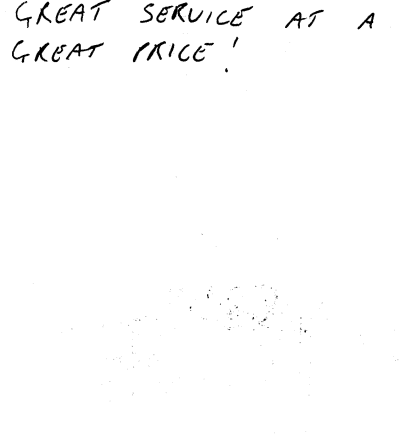 GREAT SERVICE AT A
GREAT PRICE!